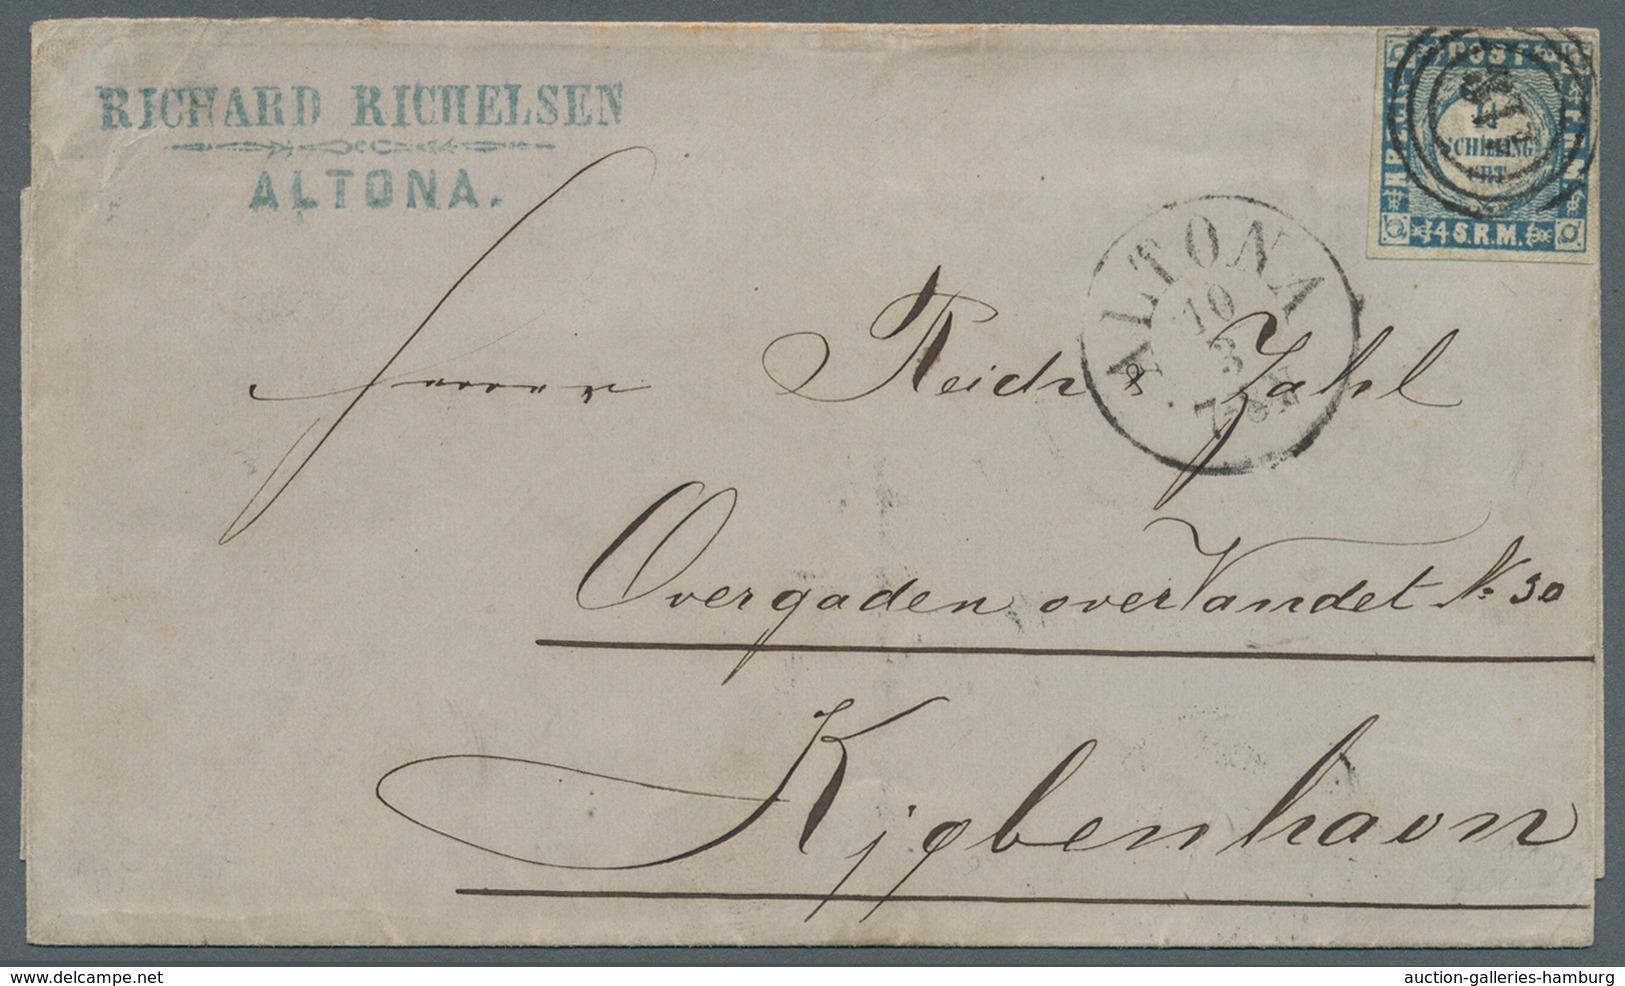 RICHARD RICHELSEN
ALTONA.
POST
SCHILLING
CRT.
4 S.R.M.
ALTONA
10
3
7-8 N
Herrer Reich & Zahl
Overgaden over Vandet No 30
Kjøbenhavn
delcampe.net
auction-galleries-hamburg